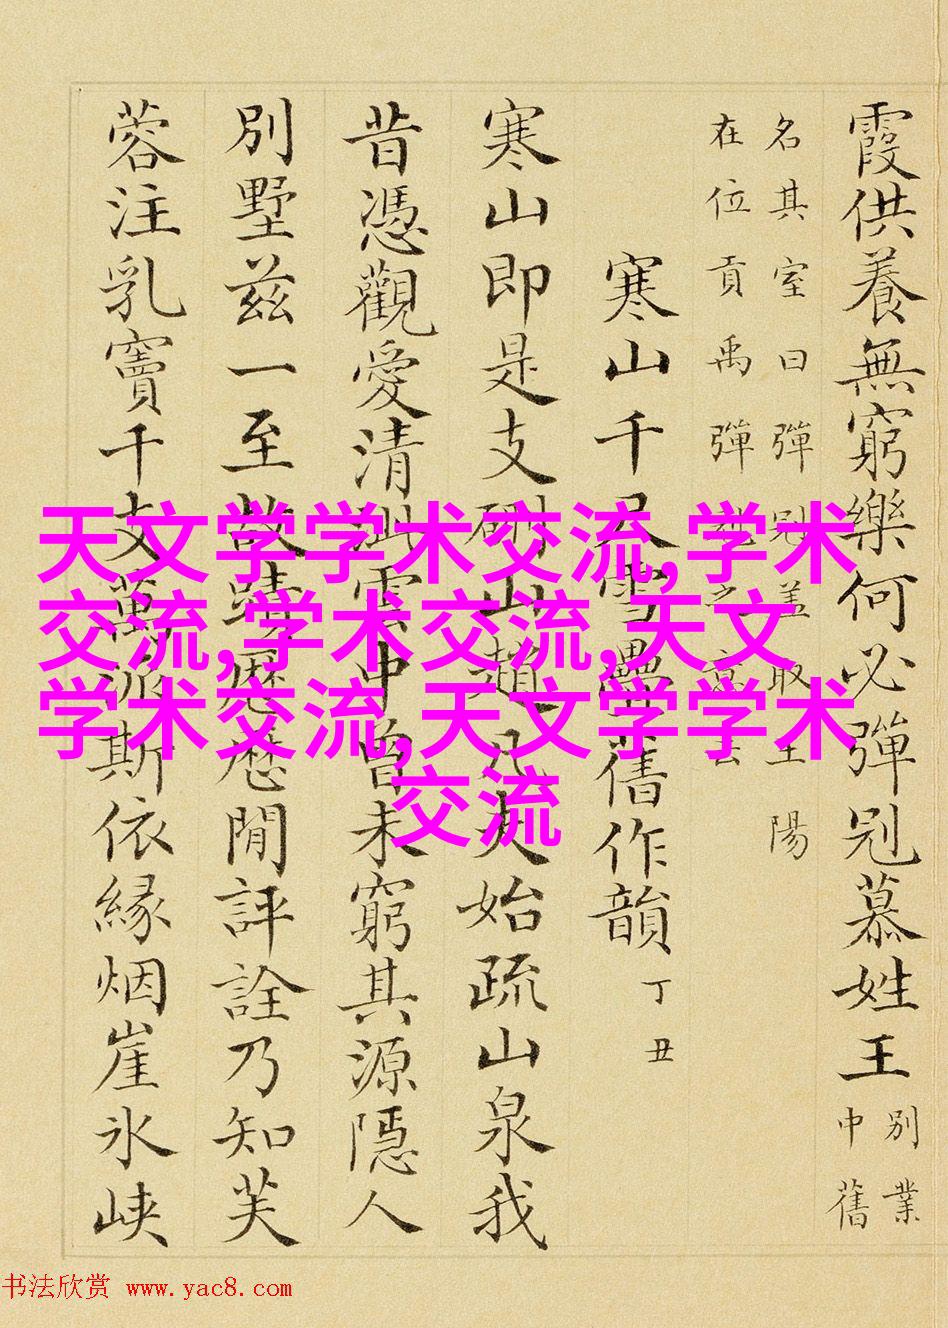 霞供養無窮樂何必彈冠慕姓王
別業
中舊
名其室曰彈冠蓋取王陽
在位貢禹彈冠之意云
寒山千尺雪疊舊作韻 丁丑
寒山即是支硎山趙凡夫始疏山泉我
昔憑觀愛清泚雲中曾未窮其源隱人
別墅茲一至故蹟歷歷閒評詮乃知芙
蓉注乳竇千支萬派斯依緣烟崖氷峽
天文学学术交流,学术
交流,学术交流,天文
学术交流,天文学学术
交流
书法欣赏 www.yac8.com